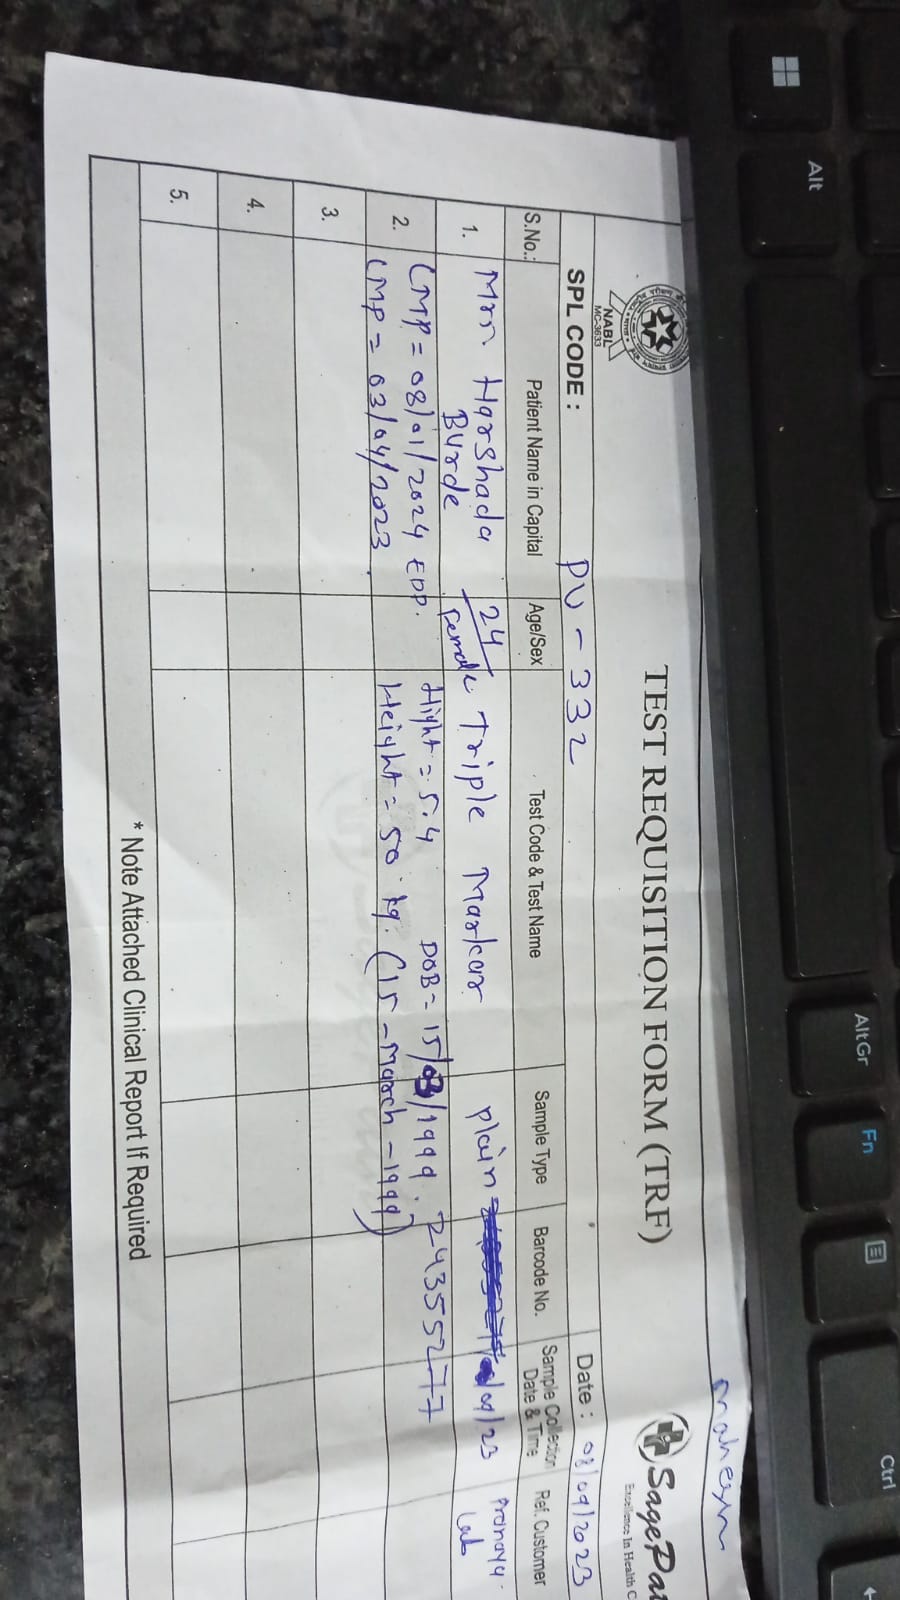 NABL
MC-3633
TEST REQUISITION FORM (TRF)
SagePat
Excellence In Health C
SPL CODE : PU - 332
Date : 08/09/2023
S.No.: Patient Name in Capital Age/Sex Test Code & Test Name Sample Type Barcode No. Sample Collection Date & Time Ref. Customer
1. Mrs Harshada Burde 24/Female Triple Marker plain /09/23 Pranaya Lab
2. LMP = 08/01/2024 EDD. Hight = 5.4 DOB = 15/03/1999. 24355277
LMP = 03/04/2023. Height = 50 kg. (15 - March - 1999)
3.
4.
5.
* Note Attached Clinical Report If Required
Alt
AltGr
Fn
Ctrl